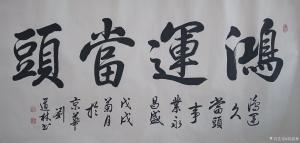 鴻運當頭
鴻運
久
當頭
事
業永
昌盛
戊戌
菊月
於
京華
劉
道林书